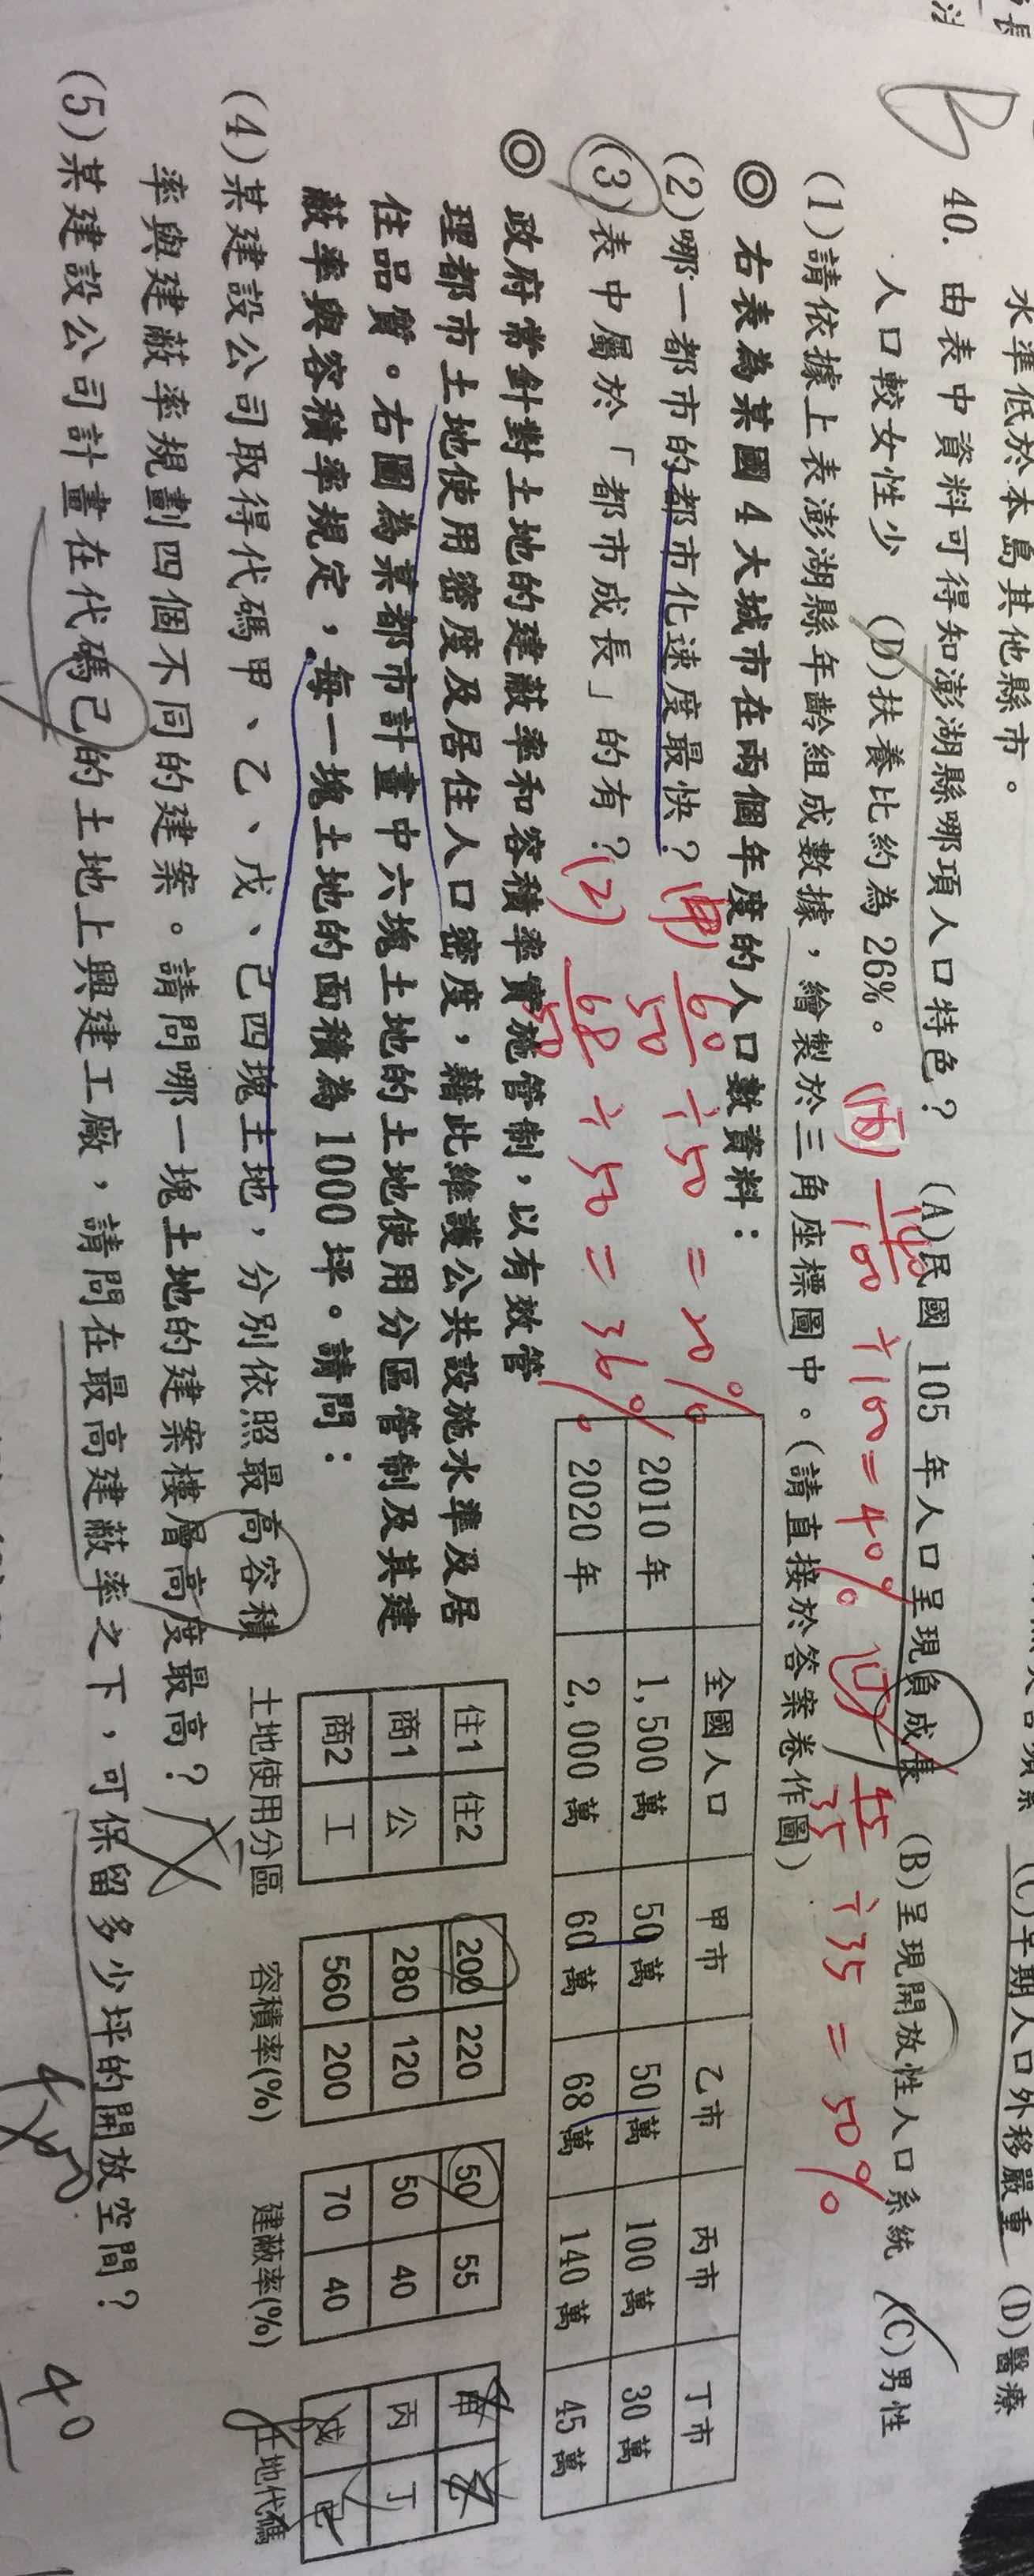 長
注
水準低於本島其他縣市。
(C)早期人口外移嚴重 (D)醫療
B
40. 由表中資料可得知澎湖縣哪項人口特色? (A)民國 105 年人口呈現負成長 (B)呈現開放性人口系統 (C)男性
人口較女性少 (D)扶養比約為 26%。
(丙) 140/100 ÷100=40% (丁) 45/35 ÷35=50%
(1)請依據上表澎湖縣年齡組成數據,繪製於三角座標圖中。(請直接於答案卷作圖)
◎ 右表為某國 4 大城市在兩個年度的人口數資料:
(2)哪一都市的都市化速度最快?
(甲) 60/50 ÷50 = 20%
(3)表中屬於「都市成長」的有?
(2) 68/50 ÷50 = 36%
全國人口 甲市 乙市 丙市 丁市
2010 年 1,500 萬 50 萬 50 萬 100 萬 30 萬
2020 年 2,000 萬 60 萬 68 萬 140 萬 45 萬
◎ 政府常針對土地的建蔽率和容積率實施管制,以有效管
理都市土地使用密度及居住人口密度,藉此維護公共設施水準及居
住品質。右圖為某都市計畫中六塊土地的土地使用分區管制及其建
蔽率與容積率規定,每一塊土地的面積為 1000 坪。請問:
住1 住2
商1 公
商2 工
土地使用分區
200 220
280 120
560 200
容積率(%)
50 55
50 40
70 40
建蔽率(%)
甲 乙
丙 丁
戊 己
土地代碼
(4)某建設公司取得代碼甲、乙、戊、己四塊土地,分別依照最高容積
率與建蔽率規劃四個不同的建案。請問哪一塊土地的建案樓層高度最高?
(5)某建設公司計畫在代碼己的土地上興建工廠,請問在最高建蔽率之下,可保留多少坪的開放空間?
40